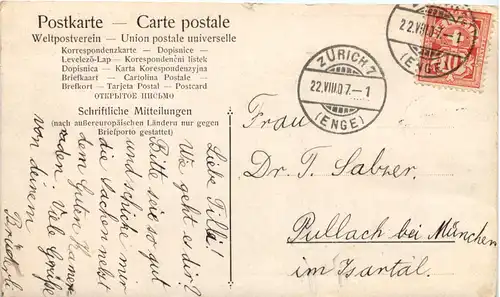 Postkarte — Carte postale
Weltpostverein — Union postale universelle
Korrespondenzkarte — Dopisnice —
Levelező-Lap — Korespondenční listek
Dopisnica — Karta Korespondenzyjna
Briefkaart — Cartolina Postale —
Brefkort — Tarjeta Postal — Postcard
ОТКРЫТОЕ ПИСЬМО
Schriftliche Mitteilungen
(nach außereuropäischen Ländern nur gegen
Briefporto gestattet)
ZÜRICH 1
22.VIII.07.—1
(ENGE)
22.VIII.07.—1
(ENGE)
10
Frau
Dr. T. Salzer
Pullach bei München
im Isartal.
Liebe Tilli!
Wie geht es dir?
Bitte sei so gut
und schicke mir
die Sachen nebst
dem Guten
Viele Grüße
von deinem